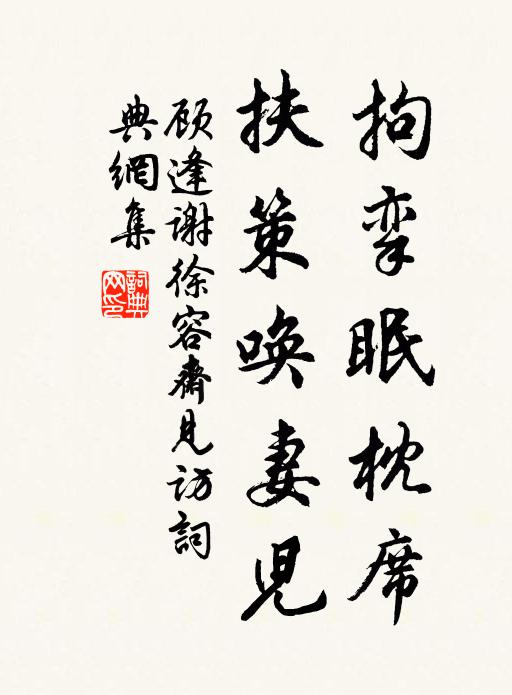 拘挛眠枕席
扶策唤妻児
顾逢谢徐容斋见访詞
典網集
詞典網印